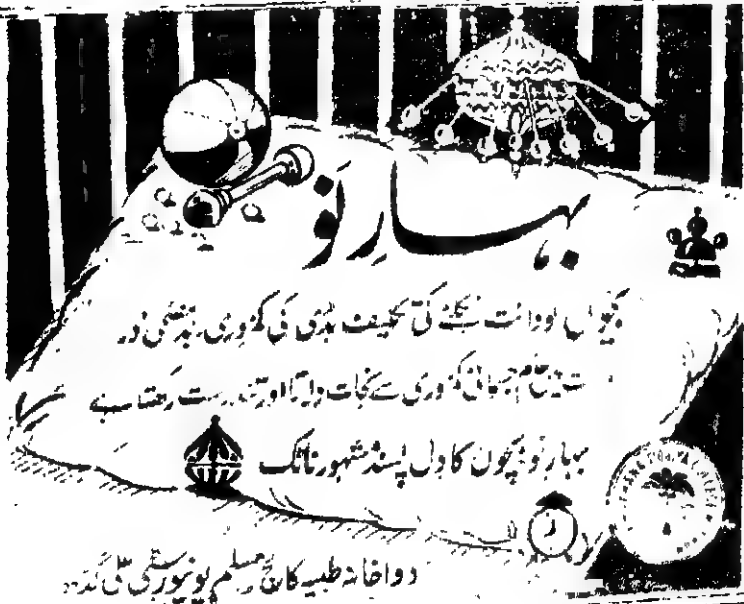 بہارِ نَو
بچوں کو دانت نکلنے کی تکلیف ہڈی کی کمزوری بدہضمی اور
عام جسمانی کمزوری سے نجات دلاتا اور تندرست رکھتا ہے
بہارِ نو بچوں کا دل پسند مشہور ٹانک
دواخانہ طبیہ کالج مسلم یونیورسٹی علی گڑھ